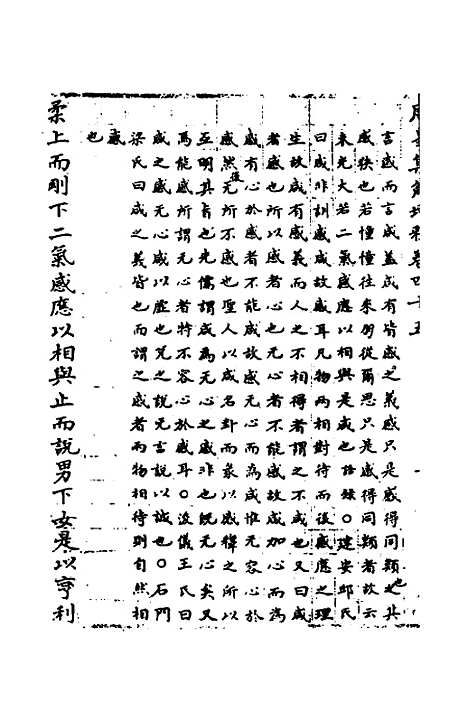 言感而言咸盖咸有皆感之義感只是感得同類之其
感狹也若憧憧往來朋從爾思只是感得同類者故云
未光大若二氣感應以相與是咸也語録○建安邱氏
曰咸非訓感咸故感耳凡物兩相對待而後感應之理
生故咸有感義而人之不相得者謂之不咸也又曰咸
者感也所以感者心也无心者不能感故咸加心而為
感有心於感者不能咸故感无心而為咸惟无容心於
感然後无所不感也聖人以咸名卦而彖以感釋之所以
互明其旨也先儒謂咸為无心之感非也旣无心矣又
焉能感所謂无心者特不容心於感耳○浚儀王氏曰
咸之感无心感以虚也兌之說无言說以誠也○石門
梁氏曰咸之義皆也而謂之感者兩物相待則自然相
感
也
柔上而剛下二氣感應以相與止而說男下女是以亨利